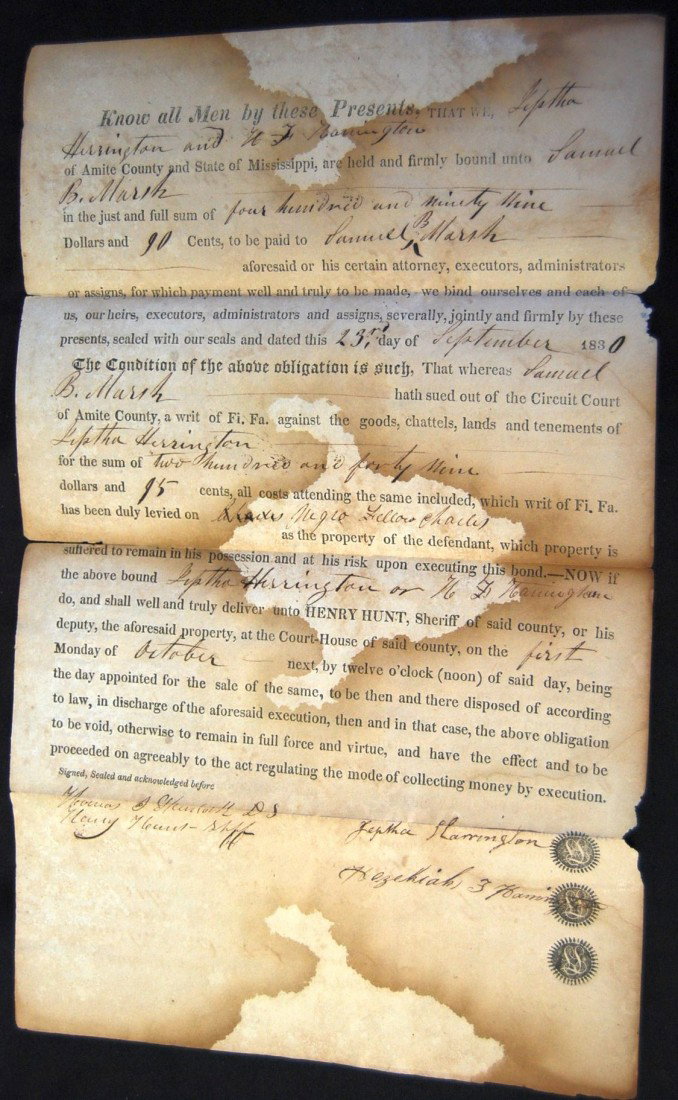 Know all Men by these Presents, THAT WE, Jeptha
Herrington and H F Harrington
of Amite County and State of Mississippi, are held and firmly bound unto Samuel
B. Marsh
in the just and full sum of four hundred and ninety nine
Dollars and 90 Cents, to be paid to Samuel B Marsh
aforesaid or his certain attorney, executors, administrators
or assigns, for which payment well and truly to be made, we bind ourselves and each of
us, our heirs, executors, administrators and assigns, severally, jointly and firmly by these
presents, sealed with our seals and dated this 23rd day of September 1830
The Condition of the above obligation is such, That whereas Samuel
B. Marsh hath sued out of the Circuit Court
of Amite County, a writ of Fi. Fa. against the goods, chattels, lands and tenements of
Jeptha Herrington
for the sum of two hundred and forty nine
dollars and 95 cents, all costs attending the same included, which writ of Fi. Fa.
has been duly levied on Negro Fellow Charles
as the property of the defendant, which property is
suffered to remain in his possession and at his risk upon executing this bond.—NOW if
the above bound Jeptha Herrington or H F Harrington
do, and shall well and truly deliver unto HENRY HUNT, Sheriff of said county, or his
deputy, the aforesaid property, at the Court-House of said county, on the first
Monday of October next, by twelve o'clock (noon) of said day, being
the day appointed for the sale of the same, to be then and there disposed of according
to law, in discharge of the aforesaid execution, then and in that case, the above obligation
to be void, otherwise to remain in full force and virtue, and have the effect and to be
proceeded on agreebly to the act regulating the mode of collecting money by execution.
Signed, Sealed and acknowledged before
Thomas D S
Henry Hunt Shff
Jeptha Harrington
Hezekiah F